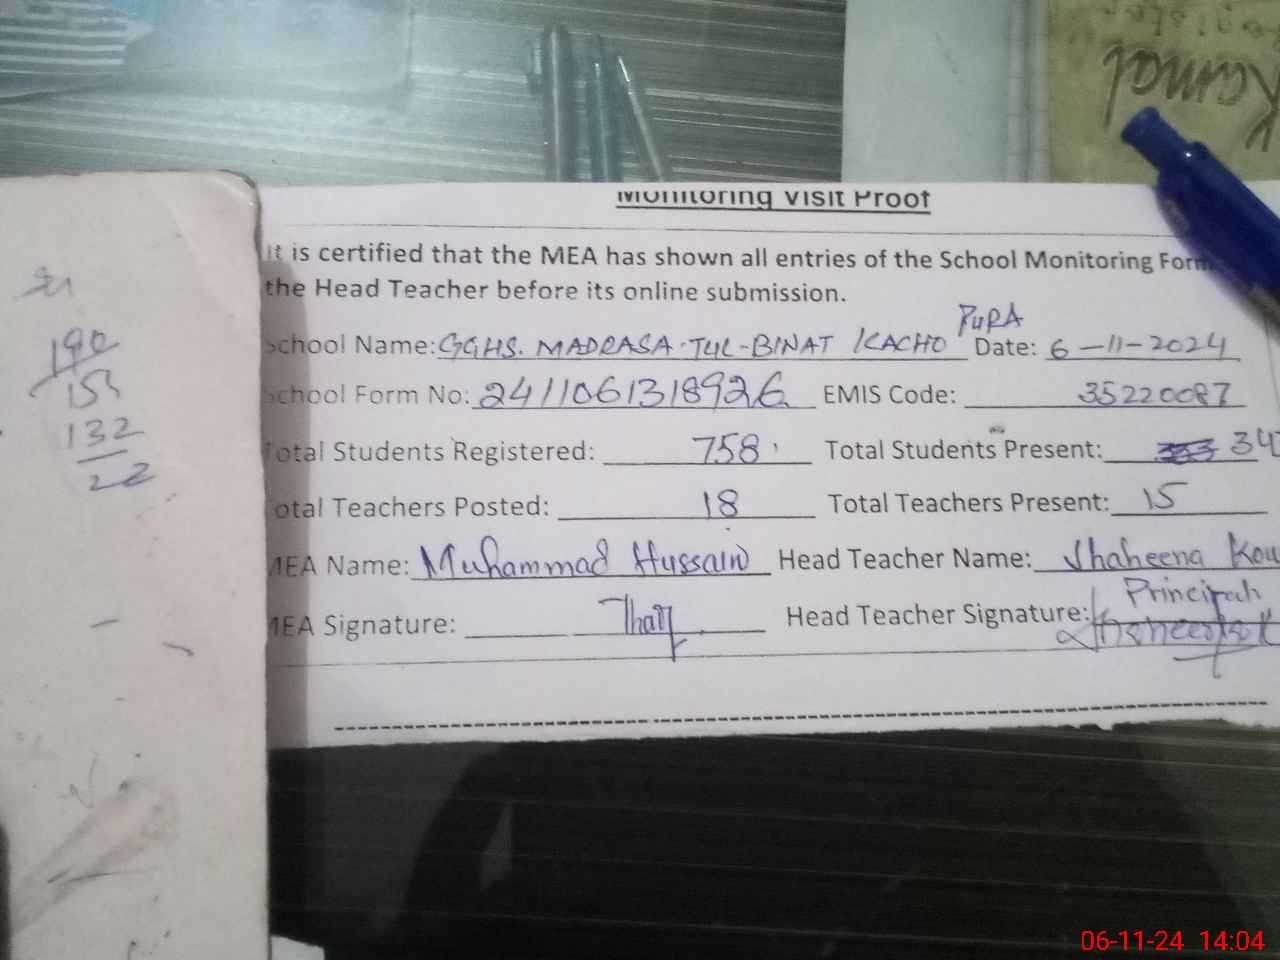 Kamal
Monitoring Visit Proof
It is certified that the MEA has shown all entries of the School Monitoring Form
the Head Teacher before its online submission.
School Name: GGHS. MADRASA-TUL-BINAT KACHO PURA Date: 6-11-2024
School Form No: 2411061318926 EMIS Code: 35220087
Total Students Registered: 758 Total Students Present: 34
Total Teachers Posted: 18 Total Teachers Present: 15
MEA Name: Muhammad Hussain Head Teacher Name: Shaheena Kou
MEA Signature: Head Teacher Signature:
Principal
190
155
132
22
06-11-24 14:04